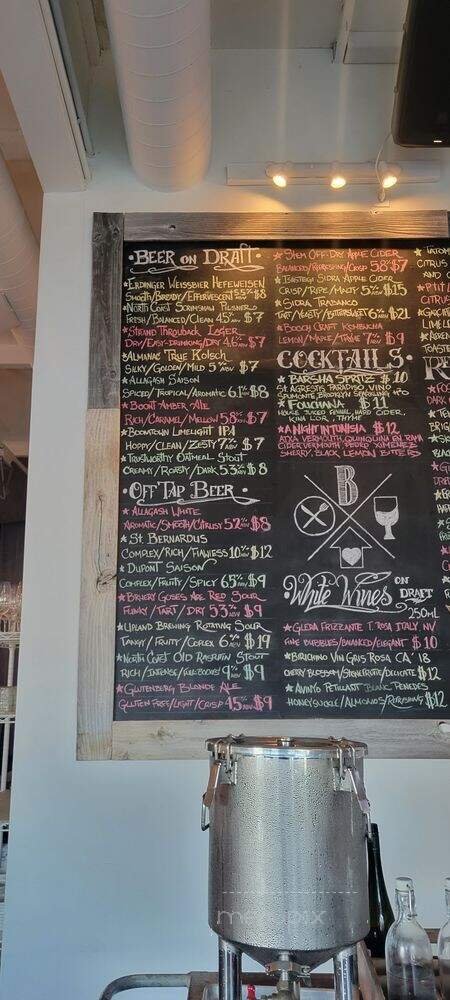 •BEER ON DRAFT•
ERDINGER WEISSBIER HEFEWEISEN
SMOOTH/BREADY/EFFERVESCENT 5.3% $8
•NORTH COAST SCRIMSHAW PILSNER
FRESH/BALANCED/CLEAN 4.5% ABV $7
★STRAND THROWBACK LAGER
DRY/EASY-DRINKING/DRY 4.6% ABV $7
•ALMANAC TRUE KOLSCH
SILKY/GOLDEN/MILD 5% ABV $7
★ALLAGASH SAISON
SPICED/TROPICAL/AROMATIC 6.1% ABV $8
★BOONT AMBER ALE
RICH/CARAMEL/MELLOW 5.8% ABV $7
★BOOMTOWN LIMELIGHT IPA
HOPPY/CLEAN/ZESTY 7% ABV $7
★TRUSTWORTHY OATMEAL STOUT
CREAMY/ROASTY/DARK 5.3% ABV $8
•OFF TAP BEER•
★ALLAGASH WHITE
AROMATIC/SMOOTH/CITRUSY 5.2% ABV $8
★ST. BERNARDUS
COMPLEX/RICH/FLAWLESS 10% ABV $12
★DUPONT SAISON
COMPLEX/FRUITY/SPICY 6.5% ABV $9
★BREWERY GOSES ARE RED SOUR
FUNKY/TART/DRY 5.3% ABV $9
★UPLAND BREWING ROTATING SOUR
TANGY/FRUITY/COPLEX 6% ABV $19
★NORTH COAST OLD RASPUTIN STOUT
RICH/INTENSE/FULL BODIED 9% ABV $9
★GLUTENBERG BLONDE ALE
GLUTEN FREE/LIGHT/CRISP 4.5% ABV $9
★STEM OFF-DRY APPLE CIDER
BALANCED/REFRESHING/CRISP 5.8% $7
★ISASTEGI SIDRA APPLE CIDER
CRISP/TART/MALTY 5% ABV $15
★SIDRA TRABANCO
TART/YEASTY/BITTERSWEET 6% ABV $21
★BOOCH CRAFT KOMBUCHA
LEMON/MAPLE/THYME 7% ABV $9
COCKTAILS•
★BARSHA SPRITZ $10
ST AGRESTIS PARADISO, VINO
SPUMONTE, BROOKLYN SPARKLING H2O
★FOUCHANA $11
HOUSE JUICED FENNEL, HARD CIDER,
KINA L'OR, THYME
★A NIGHT IN TUNISIA $12
ATXA VERMOUTH, QUINQUINA EN RAMA
CIDER VERMOUTH, PEDRO XIMENEZ
SHERRY, BLACK LEMON BITTERS
B
•White Wines ON DRAFT
250ML
★GLERA FRIZZANTE T. ROSA ITALY NV
FINE BUBBLES/BALANCED/ELEGANT $10
★BIRICHINO VIN GRIS ROSA CA '18
CHERRY BLOSSOM/STONEFRUITS/DELICATE $12
★AVINYO PETILLANT BLANC PENEDES
HONEYSUCKLE/ALMONDS/REFRESHING $12
★TATOM
CITRUS
AND
★P'TIT
CITRUS
LIME
TOASTE